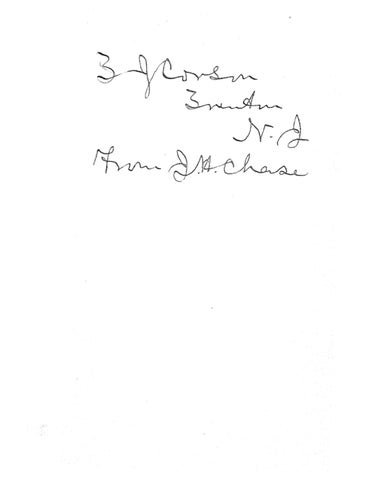 Z J Corson
Trenton
N. J
From J. H. Chase